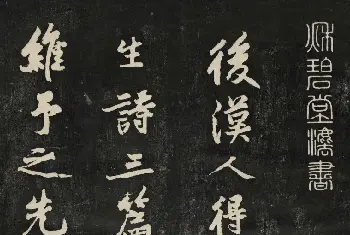 秋碧堂灋書
後漢人得
生詩三篇
維予之先